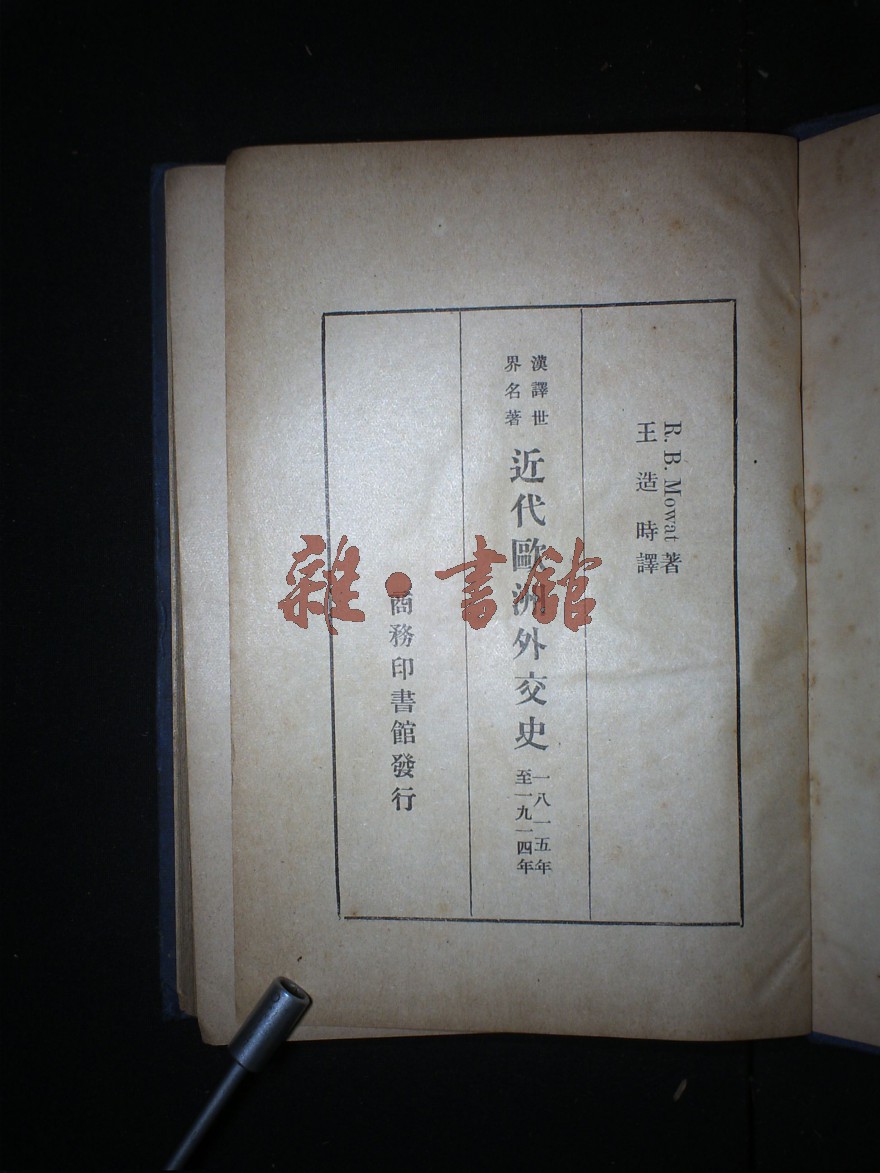 R. B. Mowat 著
王造時譯
漢譯世
界名著
近代歐洲外交史
一八一五年
至一九一四年
商務印書館發行
雜·書館